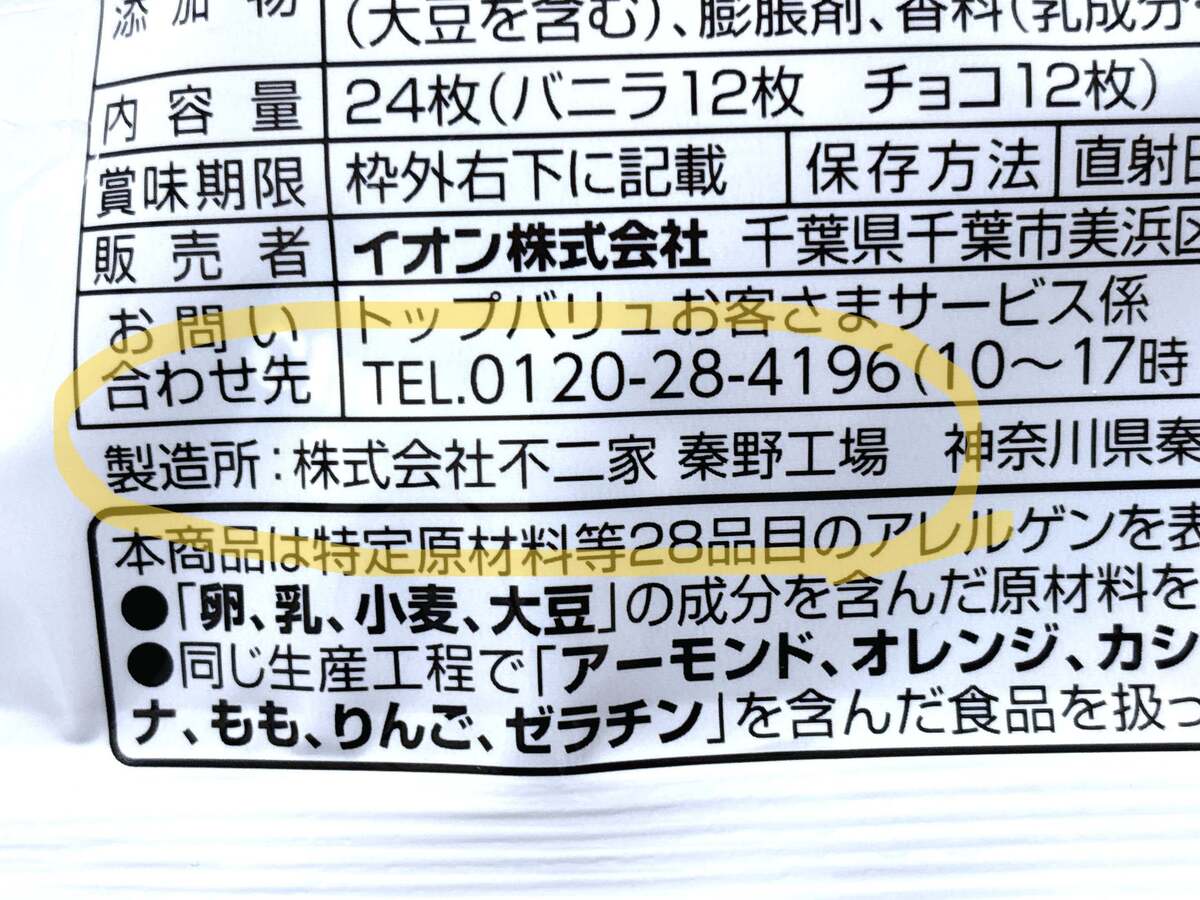 添加物 (大豆を含む)、膨脹剤、香料(乳成分
内容量 24枚(バニラ12枚　チョコ12枚)
賞味期限 枠外右下に記載 保存方法 直射
販売者 イオン株式会社 千葉県千葉市美浜区
お問い トップバリュお客さまサービス係
合わせ先 TEL.0120-28-4196(10〜17時
製造所:株式会社不二家 秦野工場　神奈川県秦
本商品は特定原材料等28品目のアレルゲンを表
●「卵、乳、小麦、大豆」の成分を含んだ原材料を
●同じ生産工程で「アーモンド、オレンジ、カシ
ナ、もも、りんご、ゼラチン」を含んだ食品を扱っ